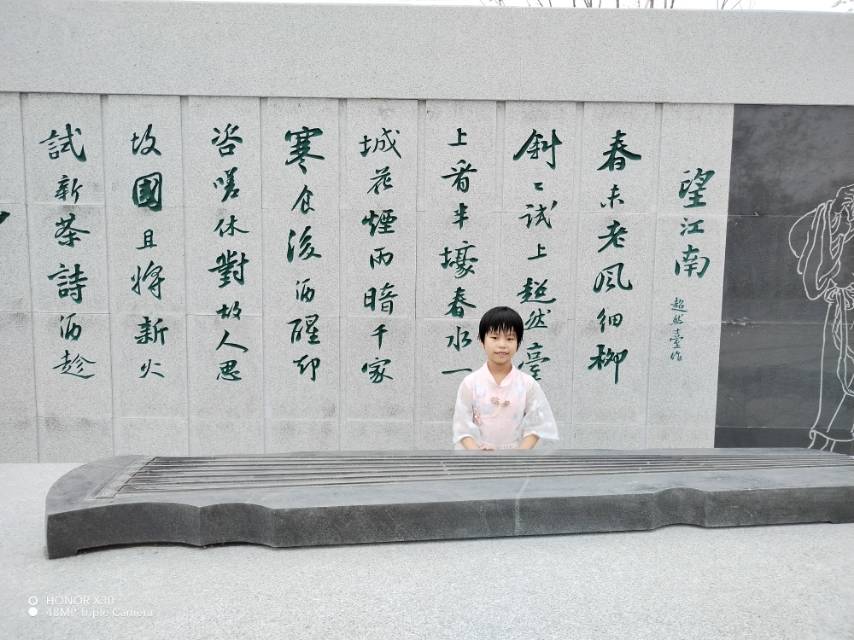 望江南
超然臺作
春未老風細柳
斜〻試上超然臺
上看半壕春水一
城花煙雨暗千家
寒食後酒醒卻
咨嗟休對故人思
故國且將新火
試新茶詩酒趁
HONOR X30
48MP Triple Camera